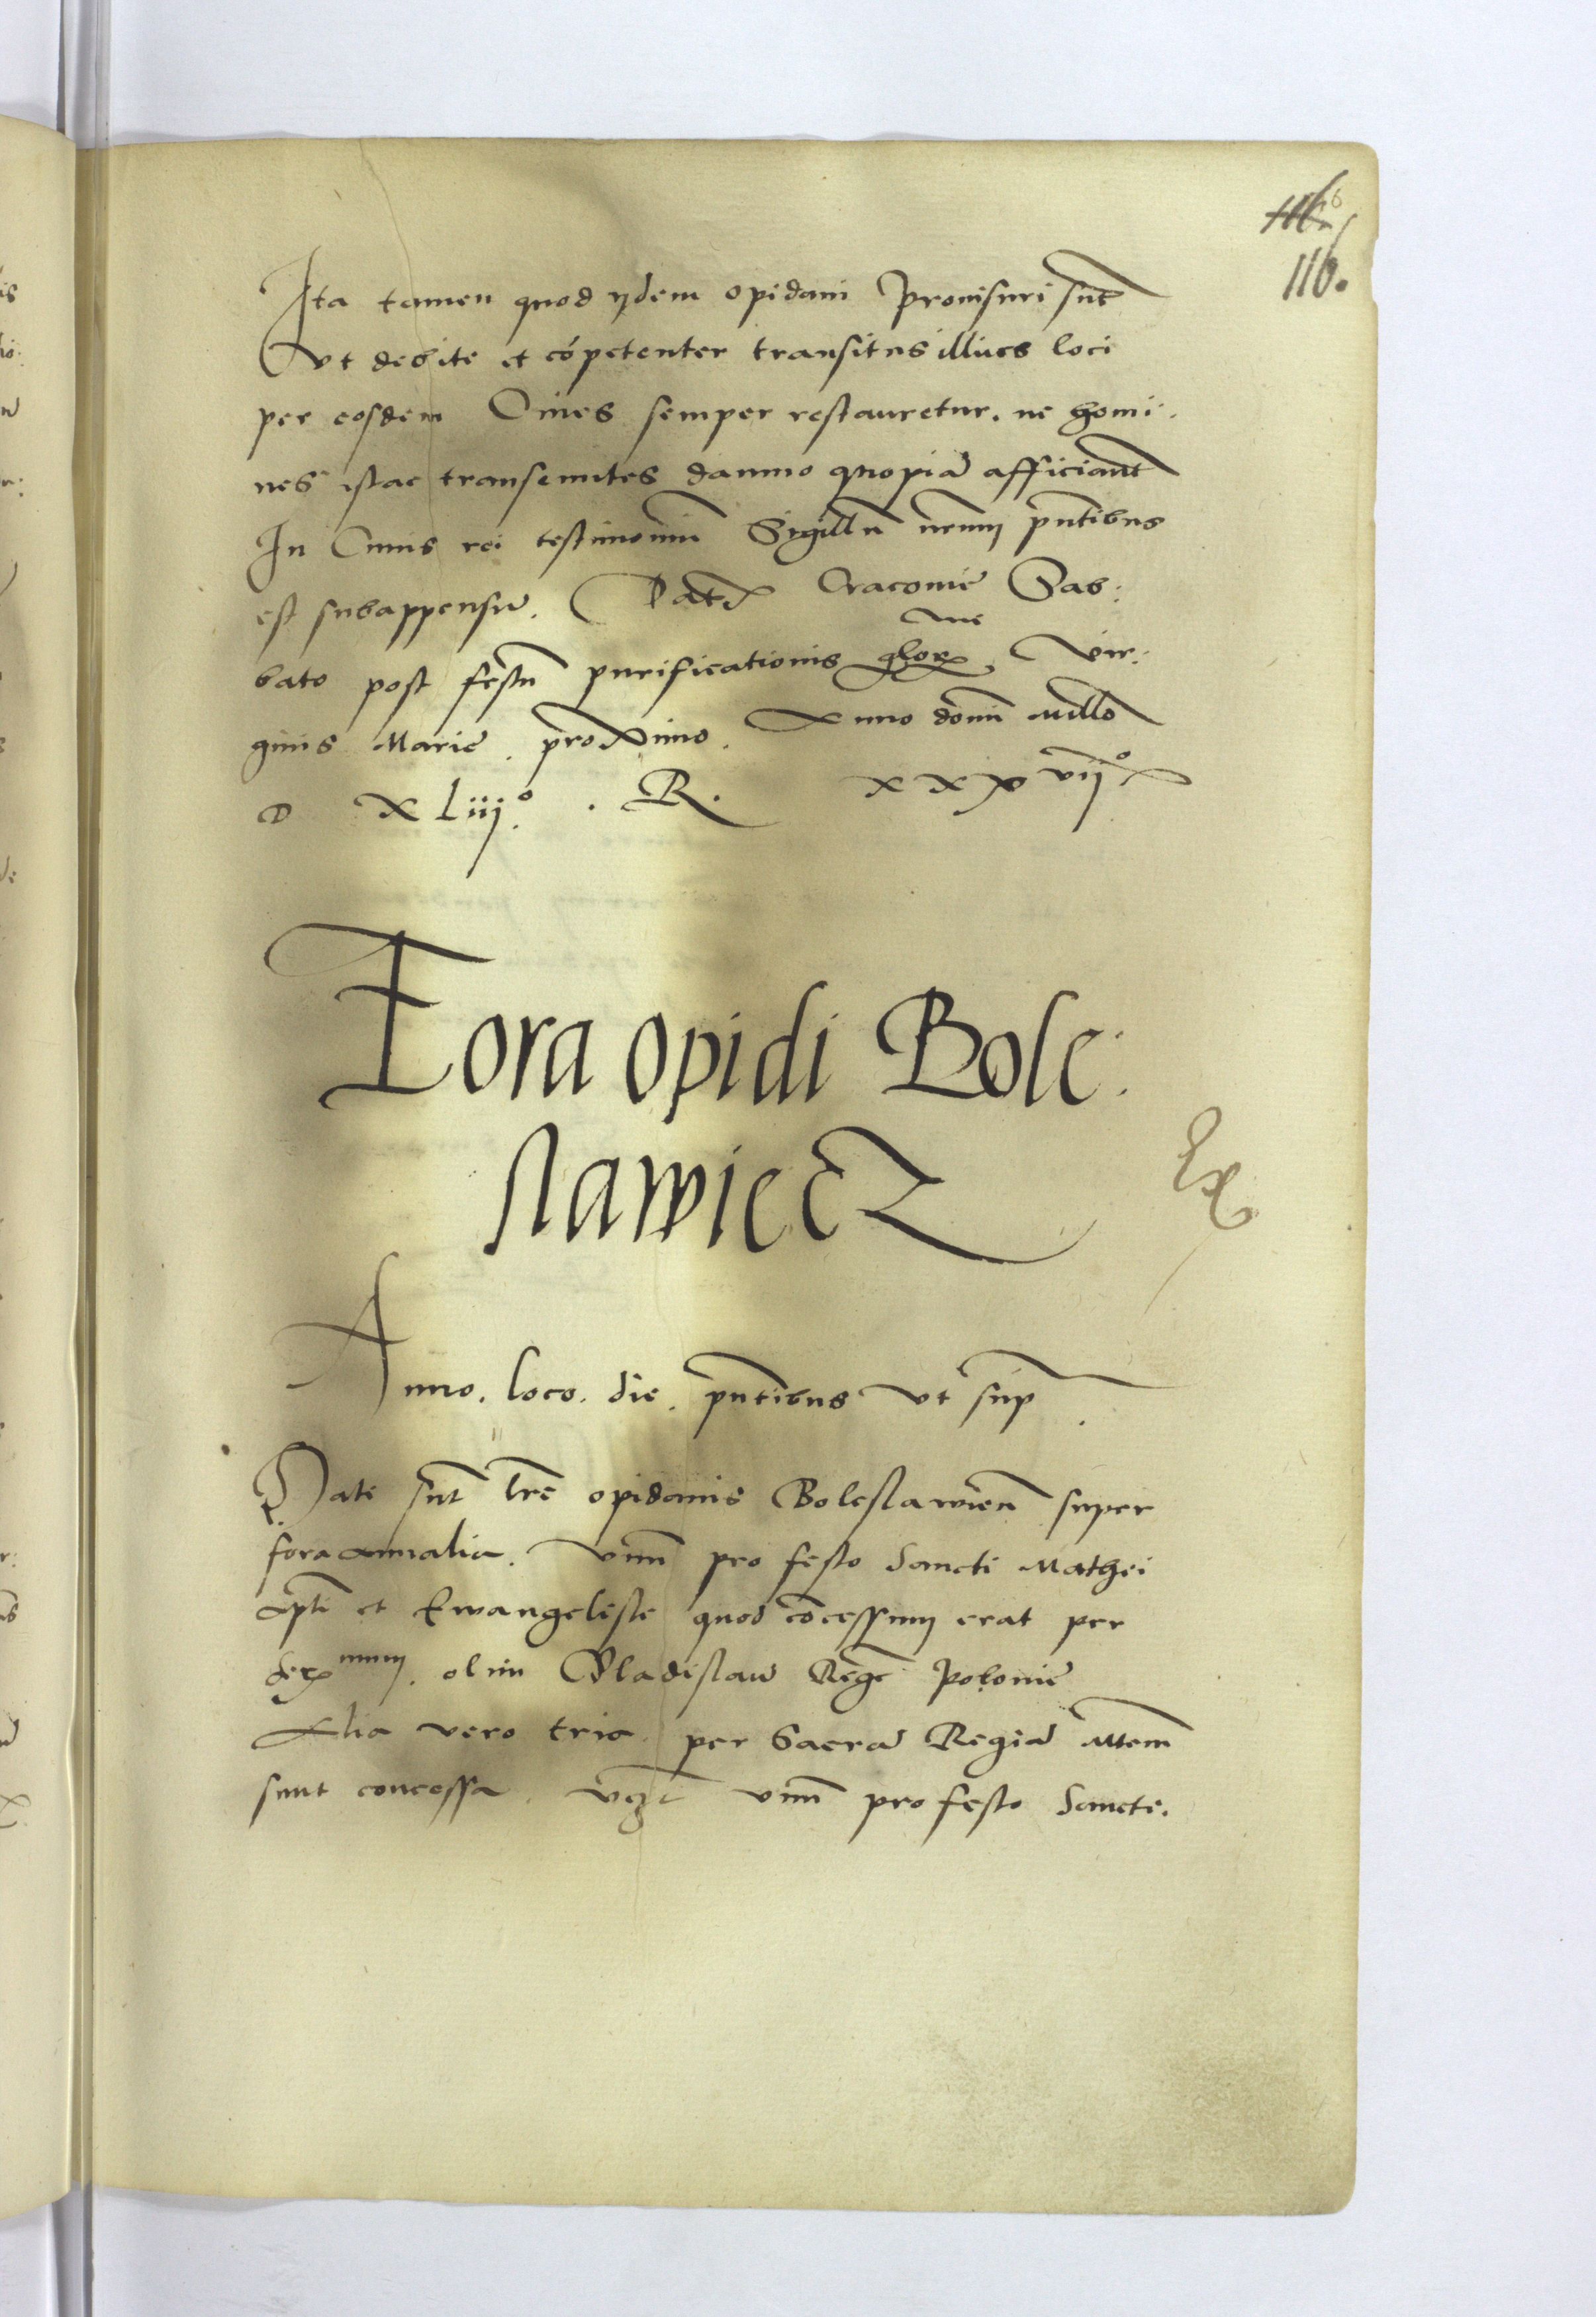 116.
Ita tamen quod ydem opidani provisuri sūt
Vt debite et cōpetenter transitus illius loci
per eosdem Cives semper restauretur. ne homi:
nes istac transeuntes damno quopiā afficiant̄
In Cuius rei testimoniū Sigillū nrm̄ pn̄tibus
est subappensū. Dat Cracovie Sab:
bato post festū purificationis glor me Vir:
ginis Marie. proximo. Anno domī Mill̄o
D XLiij°. R. xxxvij°
Fora opidi Bole:
slawiecz
Ex
Anno. loco. die. pn̄tibus vt sup̄.
Date sūt lr̄e opidanis Boleslawieñ super
fora annalia. vnū pro festo Sancti Mathei
apl̄i et Ewangeliste quod cōcessum erat per
Ser mum. olim Wladislaū Regē Polonie
Alia vero tria per Sacrā Regiā Mtem̄
sunt concessa. vcz̄t vnū pro festo Sancte.